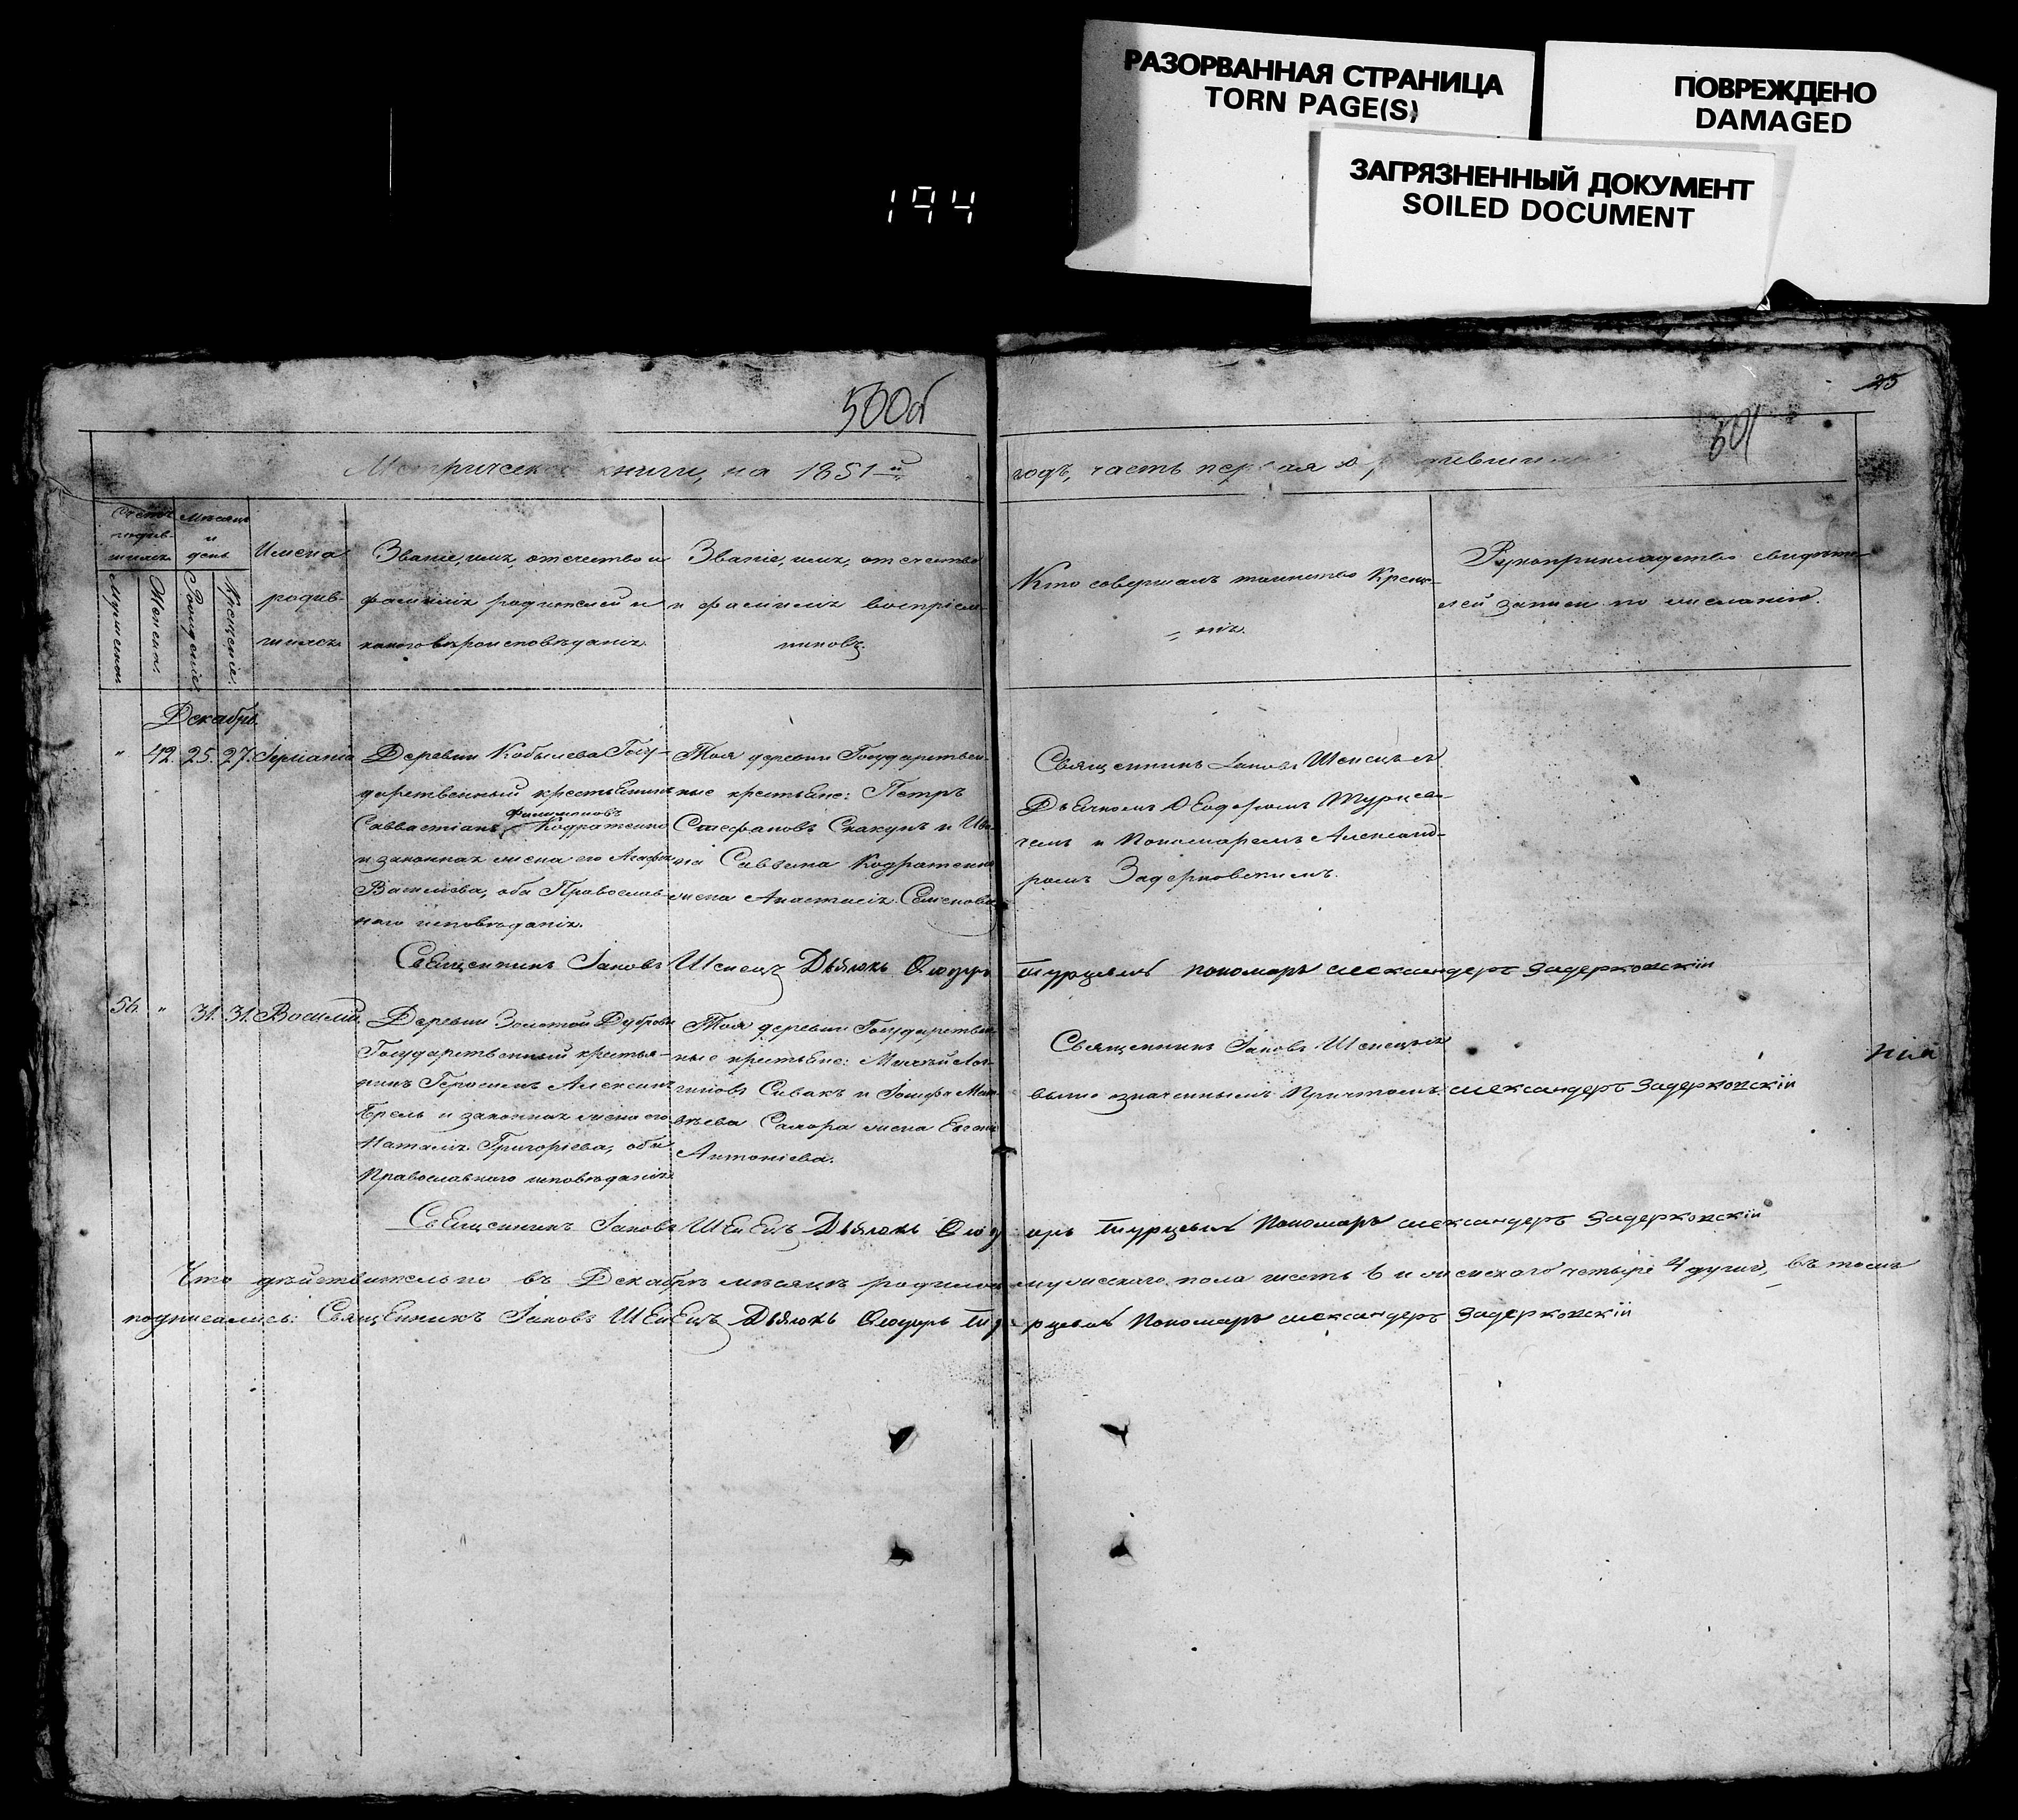 РАЗОРВАННАЯ СТРАНИЦА
TORN PAGE(S)
ПОВРЕЖДЕНО
DAMAGED
ЗАГРЯЗНЕННЫЙ ДОКУМЕНТ
SOILED DOCUMENT
194
500об
25
501
книги, на 1851-й
годъ, часть первая о
Мѣсяцъ
и
день
Мужеска
Женска
Рожденіе.
Крещеніе.
Имена
родив-
шихся.
Званіе, имя, отечество и
фамилія родителей и
какого вѣроисповѣданія.
Званіе, имя, отечество
и фамилія воспріем-
никовъ.
Кто совершалъ таинство Креще-
нія.
Рукоприкладство свидѣте-
лей записи по желанію.
Декабрь.
" 42. 25. 27.
Деревни Кобылева Госу-
дарственный крестьянинъ
Савастіанъ Кодратенко
и законная жена его
Василіева, оба Православ-
наго исповѣданія.
Тоя деревни Государствен-
ные крестьяне: Петръ
Стефановъ Скакунъ и
Саввина Кодратенка
жена Анастасія Семенова
Священникъ Іаковъ
Дьячкомъ Ѳеодоромъ Турцеви-
чемъ и Пономаремъ Александ-
ромъ Задерковскимъ.
Священникъ Іаковъ Шенецъ Дьячокъ Ѳеодоръ Турцевичъ пономарь Александеръ Задерковскій
56. " 31. 31. Василій.
Деревни Золотой Дубровы
Государственный крестья-
нинъ Герасимъ Алексинъ
и законная жена его
Наталія Григоріева, оба
Православнаго исповѣданія.
Тоя деревни Государствен-
ные крестьяне:
Сивакъ и Іосифа Мат-
вѣева Самора жена
Антоніева.
Священникъ Іаковъ Шенецъ съ
выше означеннымъ Причтомъ. Александеръ Задерковскій
Священникъ Іаковъ Шенецъ Дьячокъ Ѳеодоръ Турцевичъ Пономарь Александеръ Задерковскій
Что дѣйствительно въ Декабрѣ мѣсяцѣ родилось мужескаго пола шесть 6 и женскаго четыре 4 души, въ томъ
подписались: Священникъ Іаковъ Шенецъ Дьячокъ Ѳеодоръ Турцевичъ Пономарь Александеръ Задерковскій